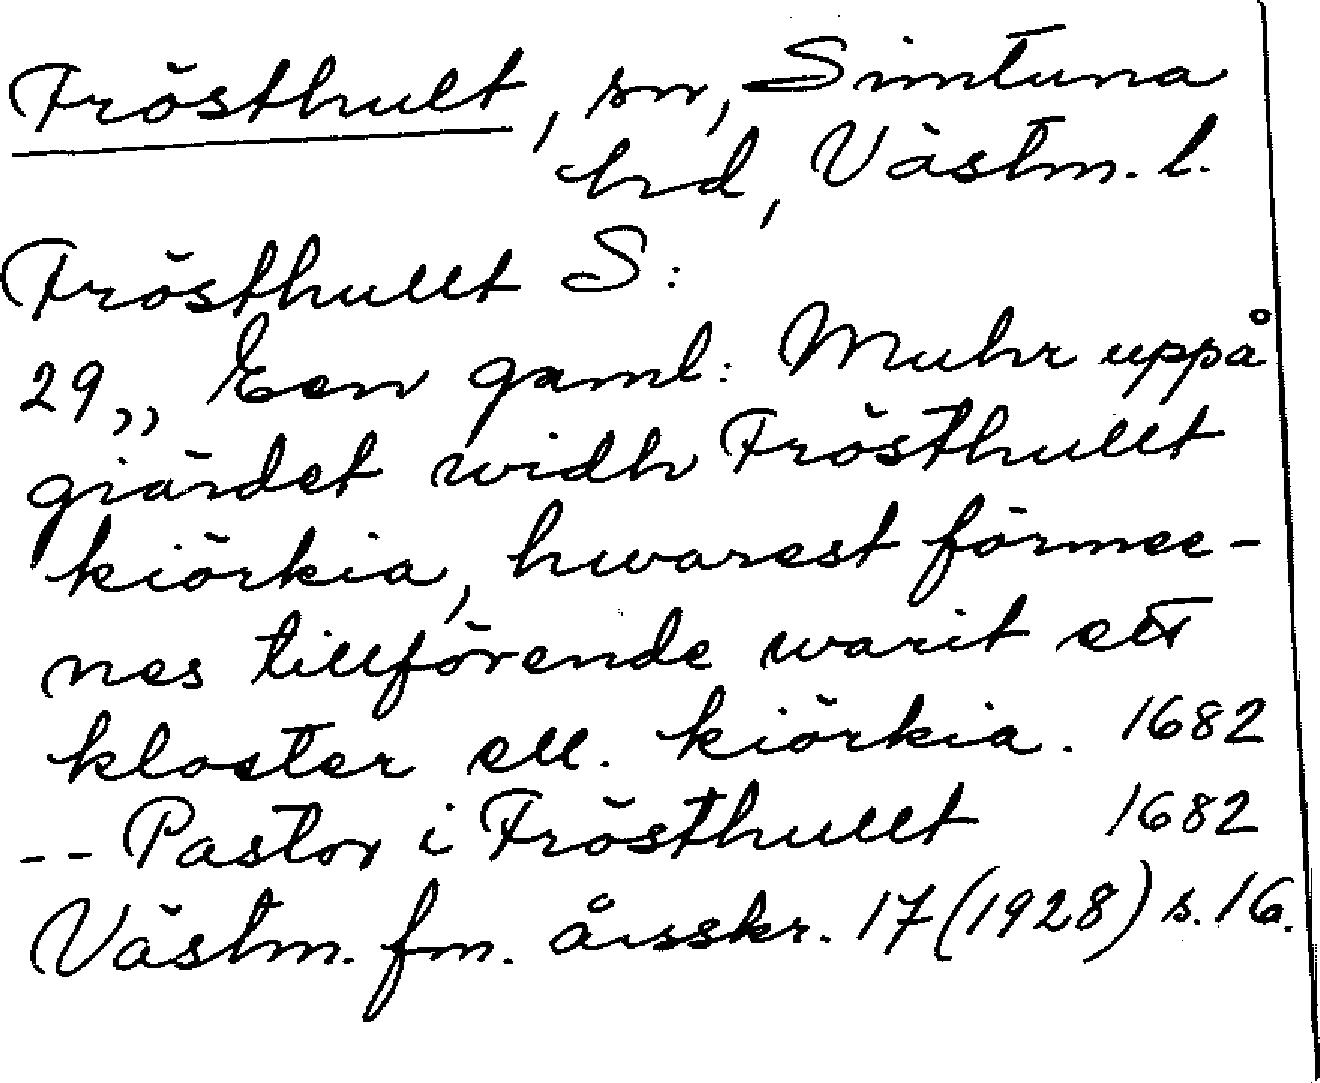 Frösthult, sn, Simtuna
hd, Västm. l.
Frösthullt S:
29,, Een gaml: Muhr uppå
giärdet widh Frösthullt
kiörkia, hwarest förmee-
nes tillförende warit ett
kloster ell. kiörkia. 1682
-- Pastor i Frösthullt 1682
Västm. fm. årsskr. 17 (1928) s. 16.